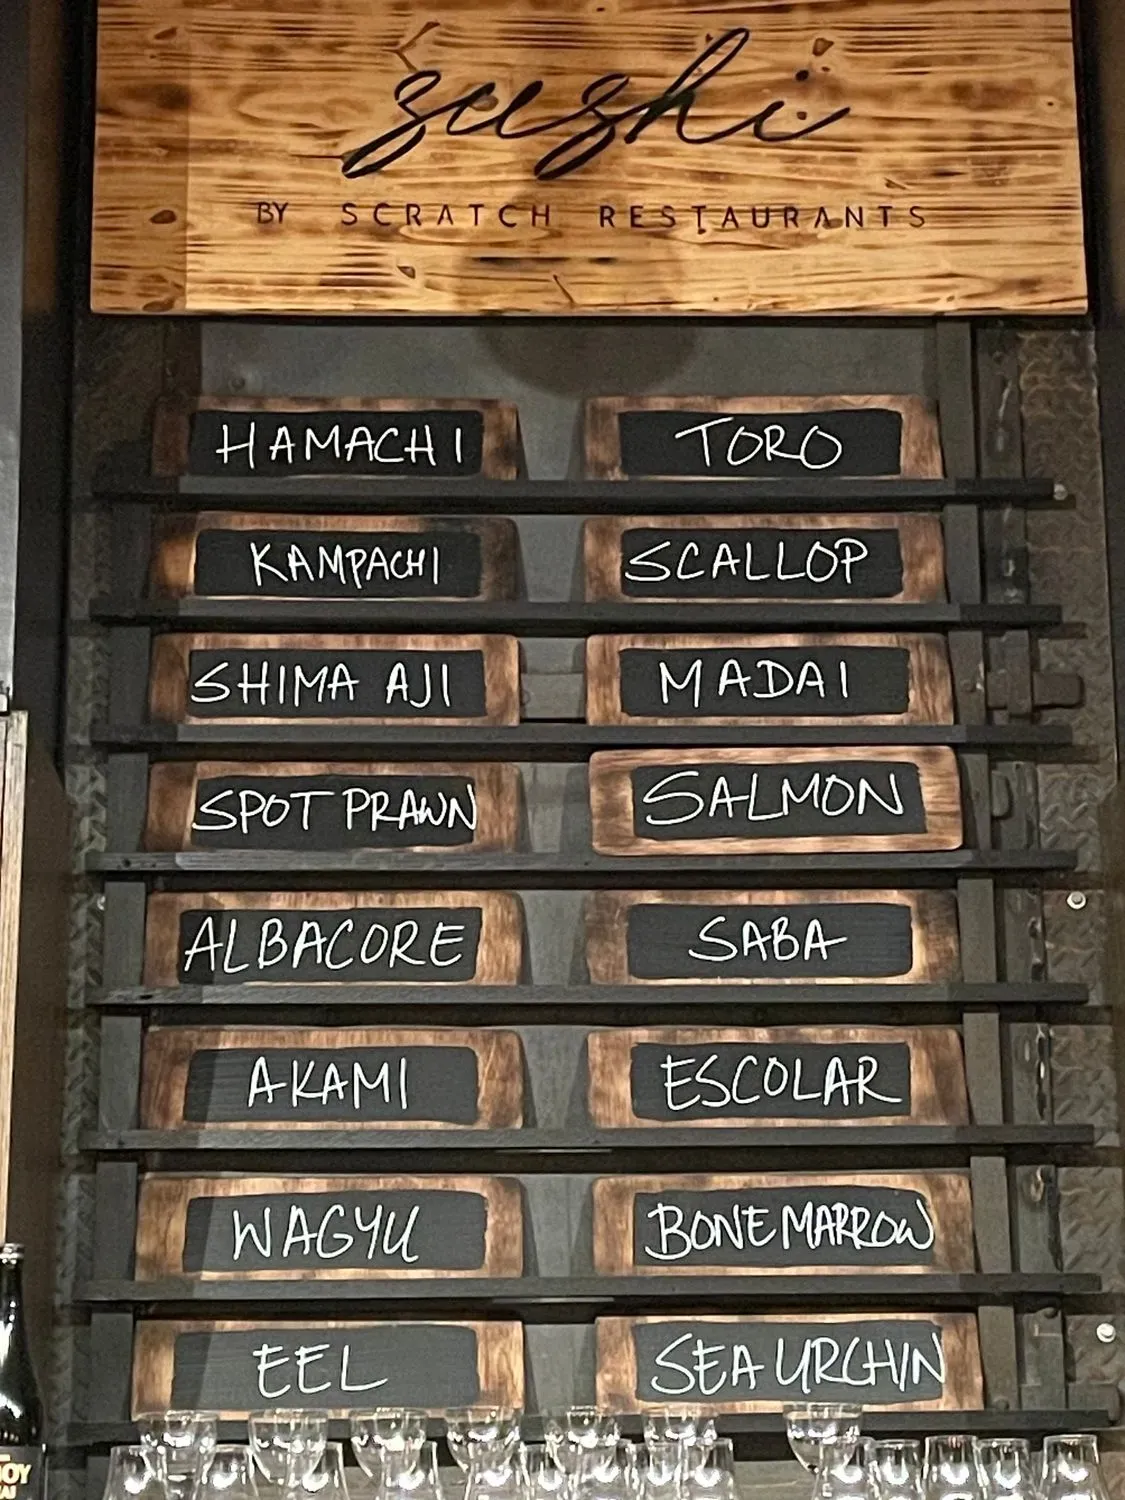 sushi
BY SCRATCH RESTAURANTS
HAMACHI
TORO
KAMPACHI
SCALLOP
SHIMA AJI
MADAI
SPOT PRAWN
SALMON
ALBACORE
SABA
AKAMI
ESCOLAR
WAGYU
BONE MARROW
EEL
SEA URCHIN